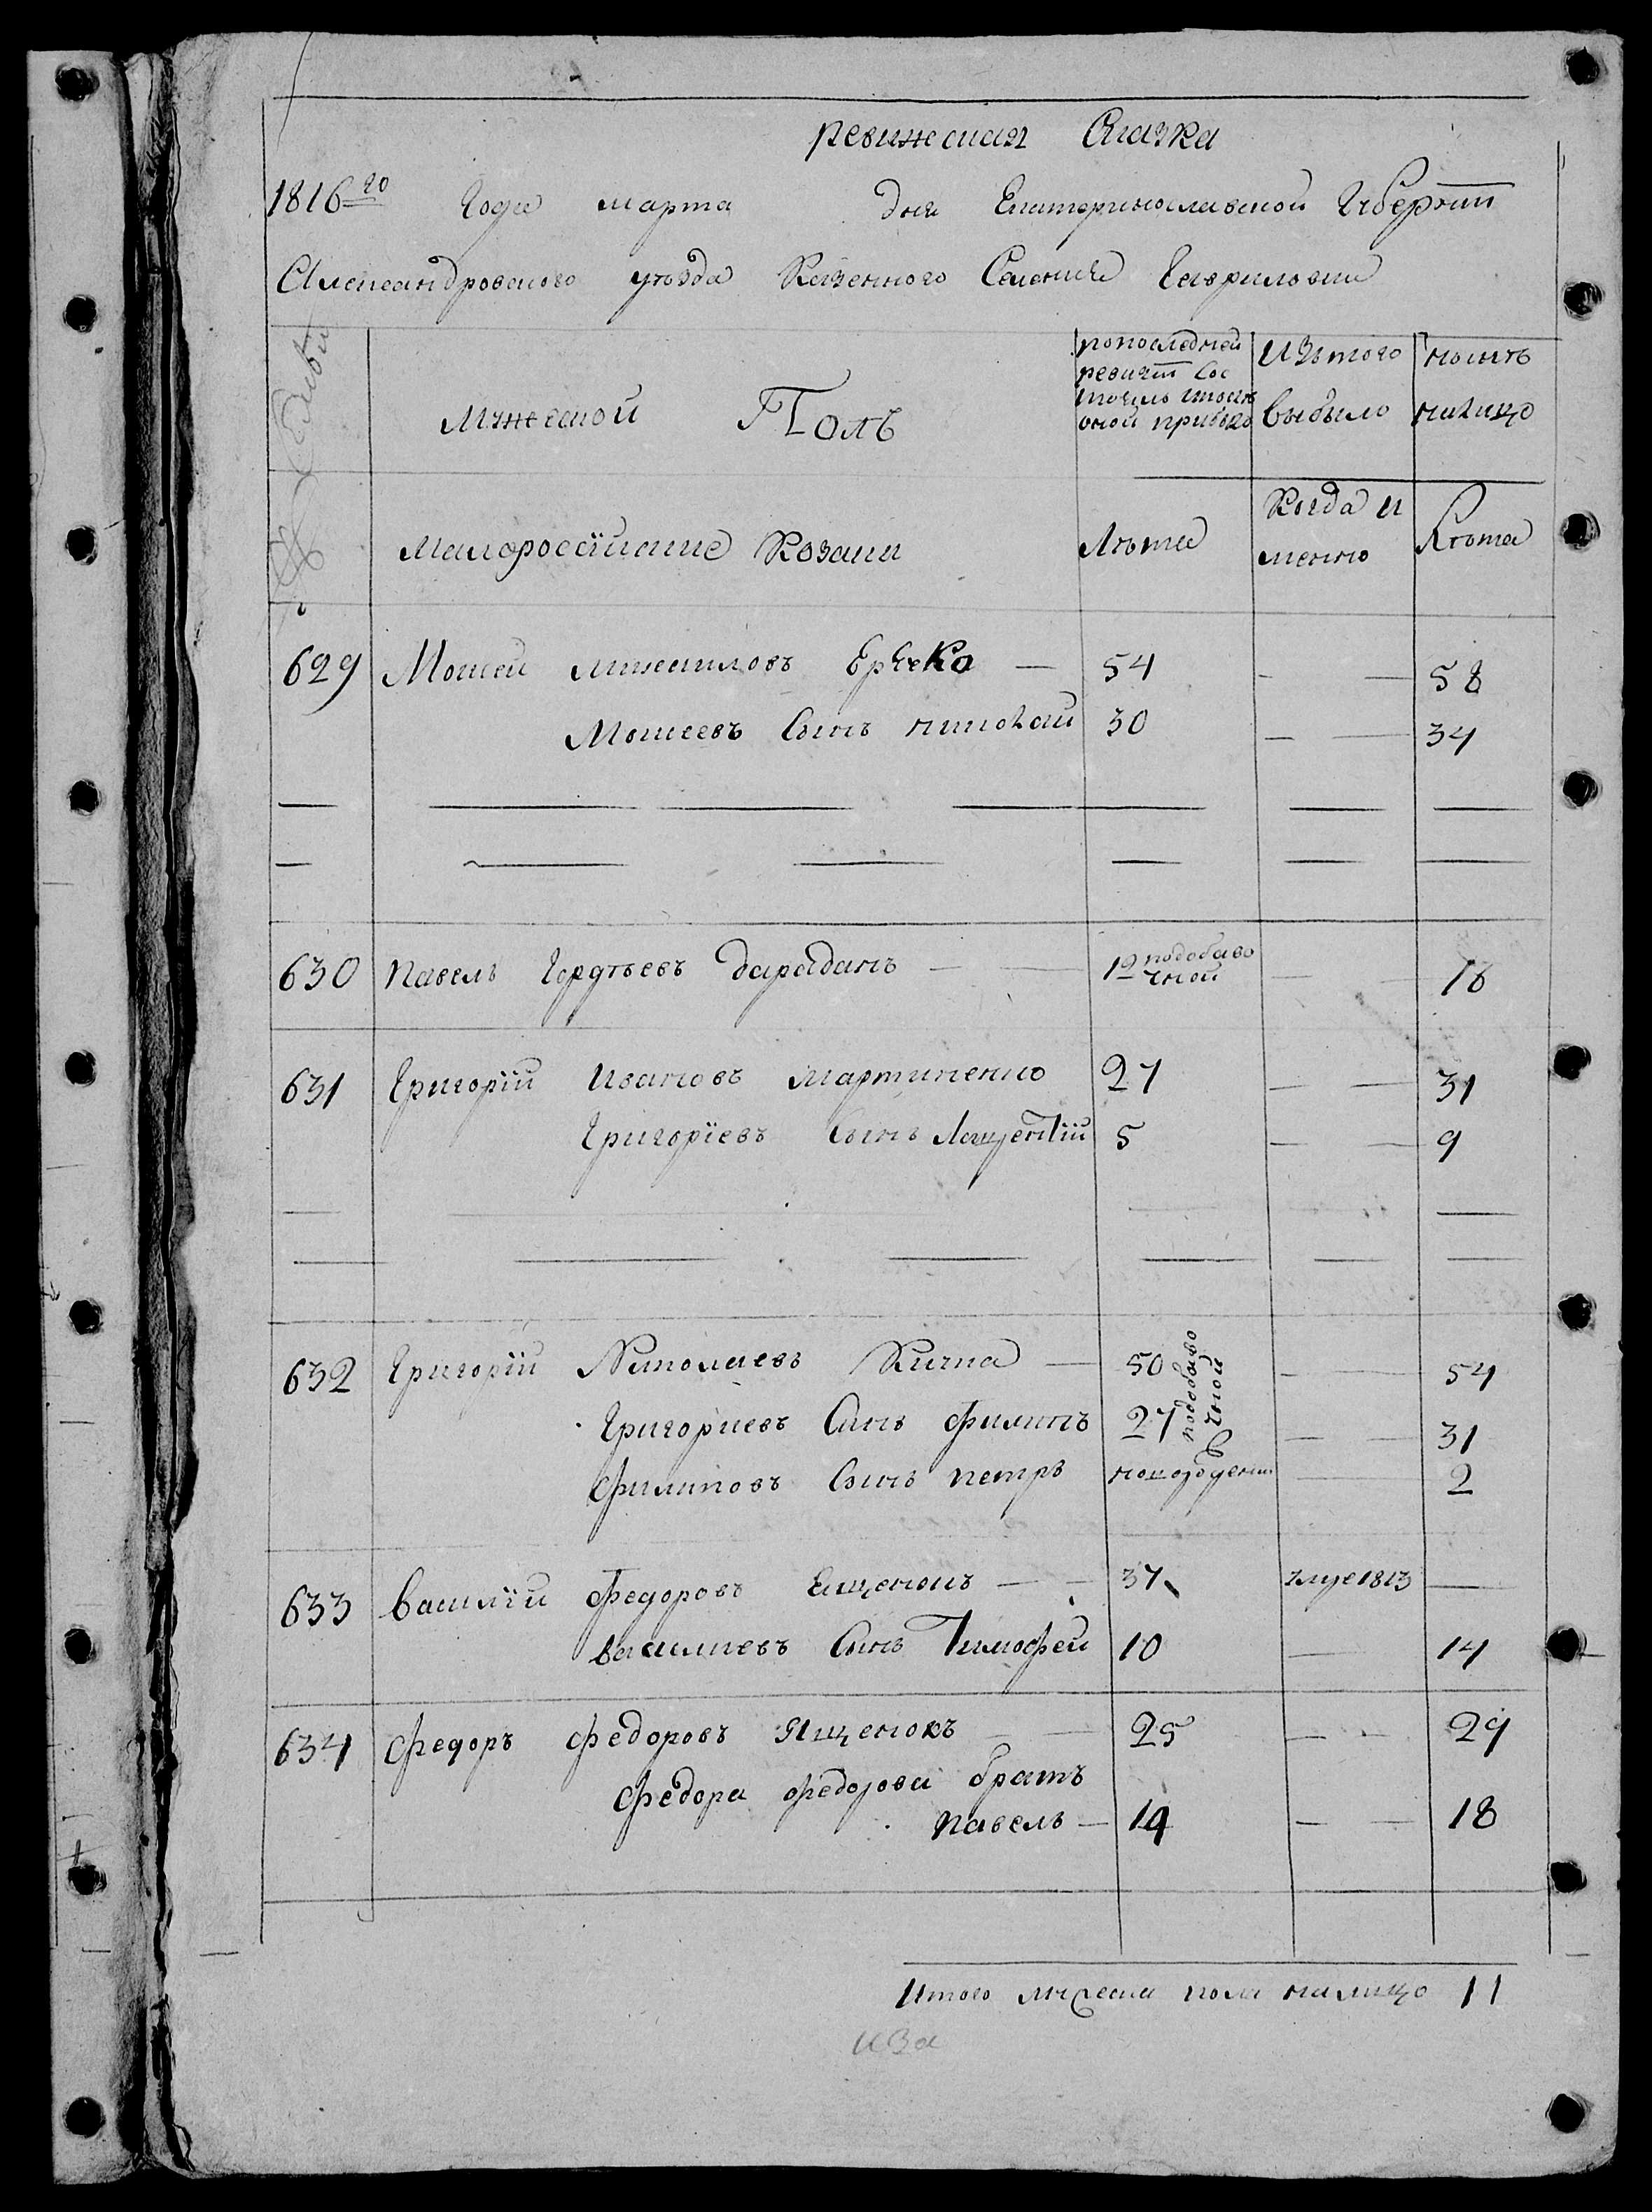 ревижская Сказка
1816го Года марта дня Екатеринославской Губернии
Александровского уъзда Казенного Селения Гавриловки
мужеской Полъ
попоследней ревизіи Сос тояло и после оной прибыло
Изътого выбыло
нынъ налицо
Малороссійские Козаки
Лъта
Когда и менно
Лъта
629 Мокей михаиловъ Ереско — 54 — 58
Мокеевъ Сынъ николай 30 — 34
630 Павелъ Гордъевъ дараданъ — 12 подобаво чной — 16
631 Григорій Ивановъ мартиненко 27 — 31
Григоріевъ Сынъ Лаурентій 5 — 9
632 Григорій Николаевъ Кичка — 50 — 54
Григориевъ Синъ Филипъ 27 — 31
подобаво чной
Филиповъ Сынъ петръ новорожденъ — 2
633 василій Федоровъ Ещенокъ — 37 1813 —
василиевъ Синъ Тимофей 10 — 14
634 Федоръ Федоровъ Ященокъ — 25 — 29
Федора федорова братъ
павелъ — 14 — 18
Итого мужеска пола налицо 11